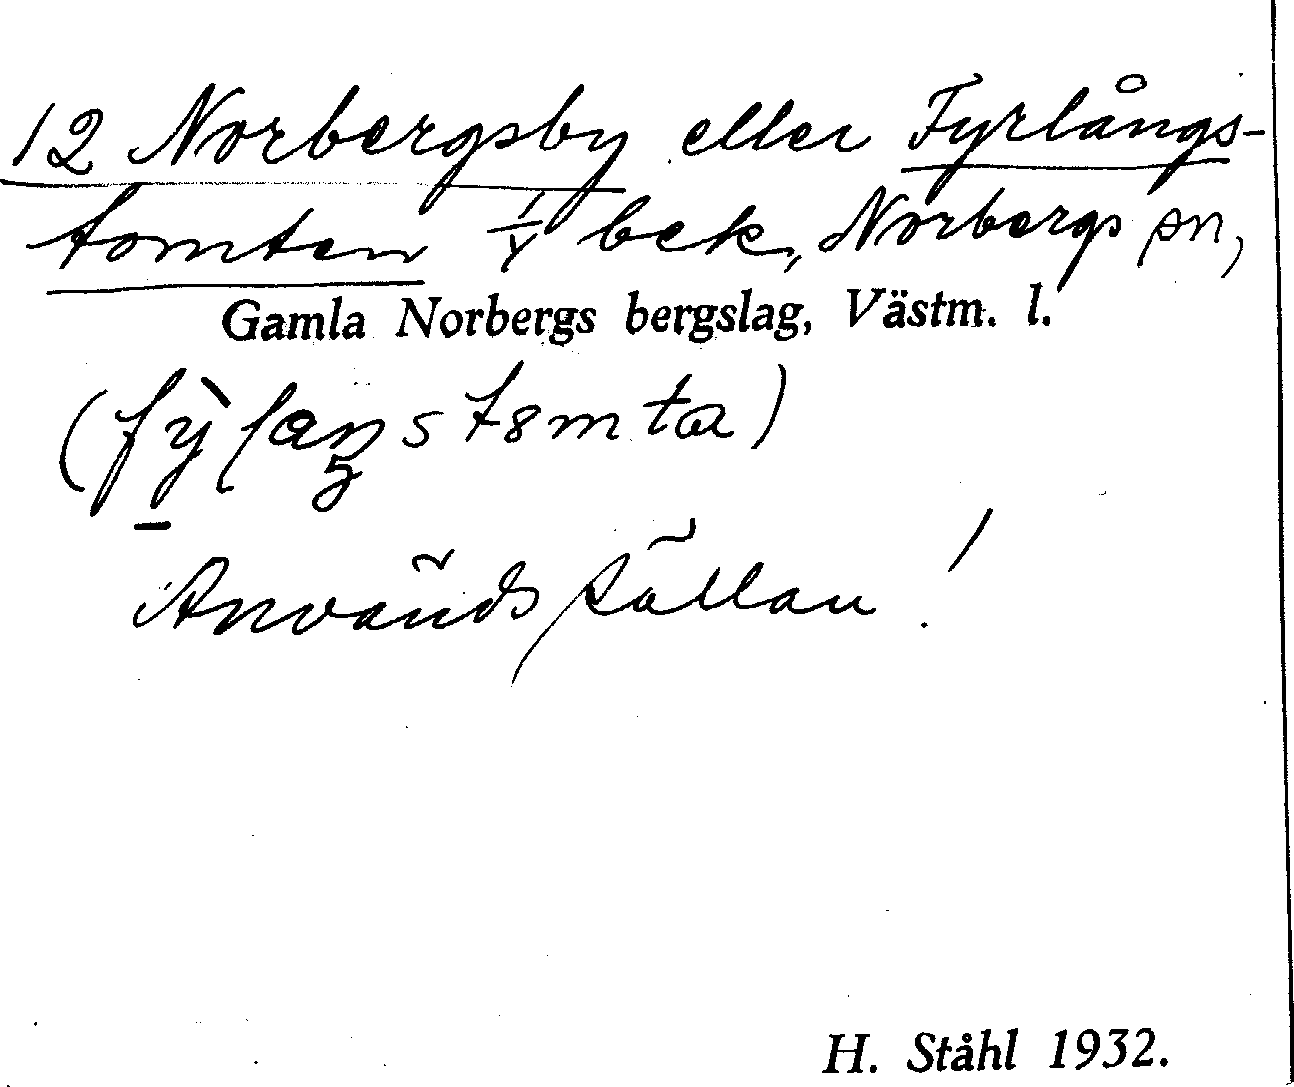 12 Norbergsby eller Fyrlångs-
tomten 1/4 bek, Norbergs sn,
Gamla Norbergs bergslag, Västm. l.
Används sällan!
H. Ståhl 1932.